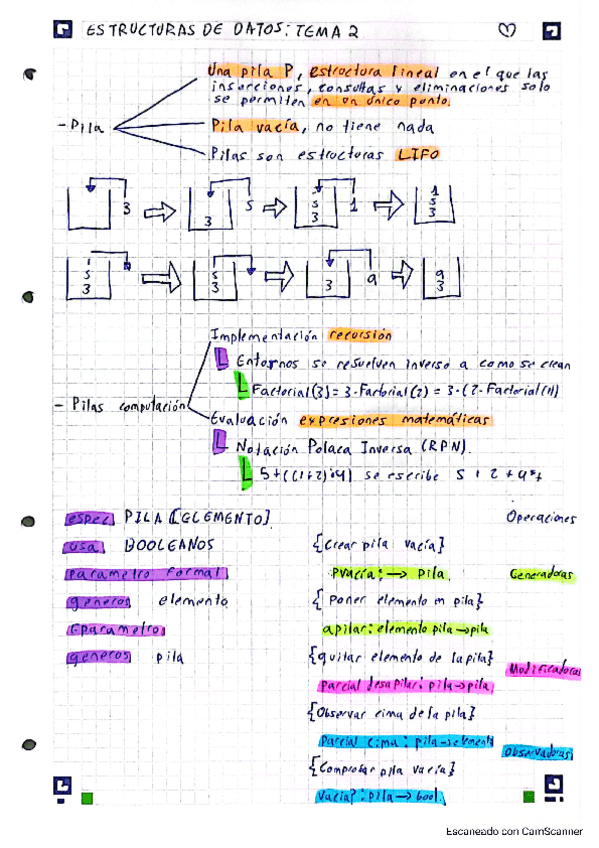 ESTRUCTURAS DE DATOS: TEMA 2
Una pila P, estructura lineal en el que las
inserciones, consultas y eliminaciones solo
se permiten en un único punto.
- Pila
Pila vacía, no tiene nada
Pilas son estructuras LIFO
3
3
5
5
3
1
1
5
3
5
3
5
3
3
9
9
3
Implementación recursión
Entornos se resuelven inverso a como se crean
Factorial(3) = 3·Factorial(2) = 3·(2·Factorial(1))
- Pilas computación
Evaluación expresiones matemáticas
Notación Polaca Inversa (RPN).
5+((1+2)·4) se escribe 5 1 2 + 4 * +
espec PILA [ELEMENTO]
Operaciones
usa BOOLEANOS
{Crear pila vacía}
parametro formal
pvacía: → pila
Generadoras
generos elemento
{Poner elemento en pila}
fparametro
apilar: elemento pila → pila
generos pila
{quitar elemento de la pila}
Modificadoras
parcial desapilar: pila → pila
{Observar cima de la pila}
parcial cima: pila → elemento
Observadoras
{Comprobar pila vacía}
vacía?: pila → bool
Escaneado con CamScanner